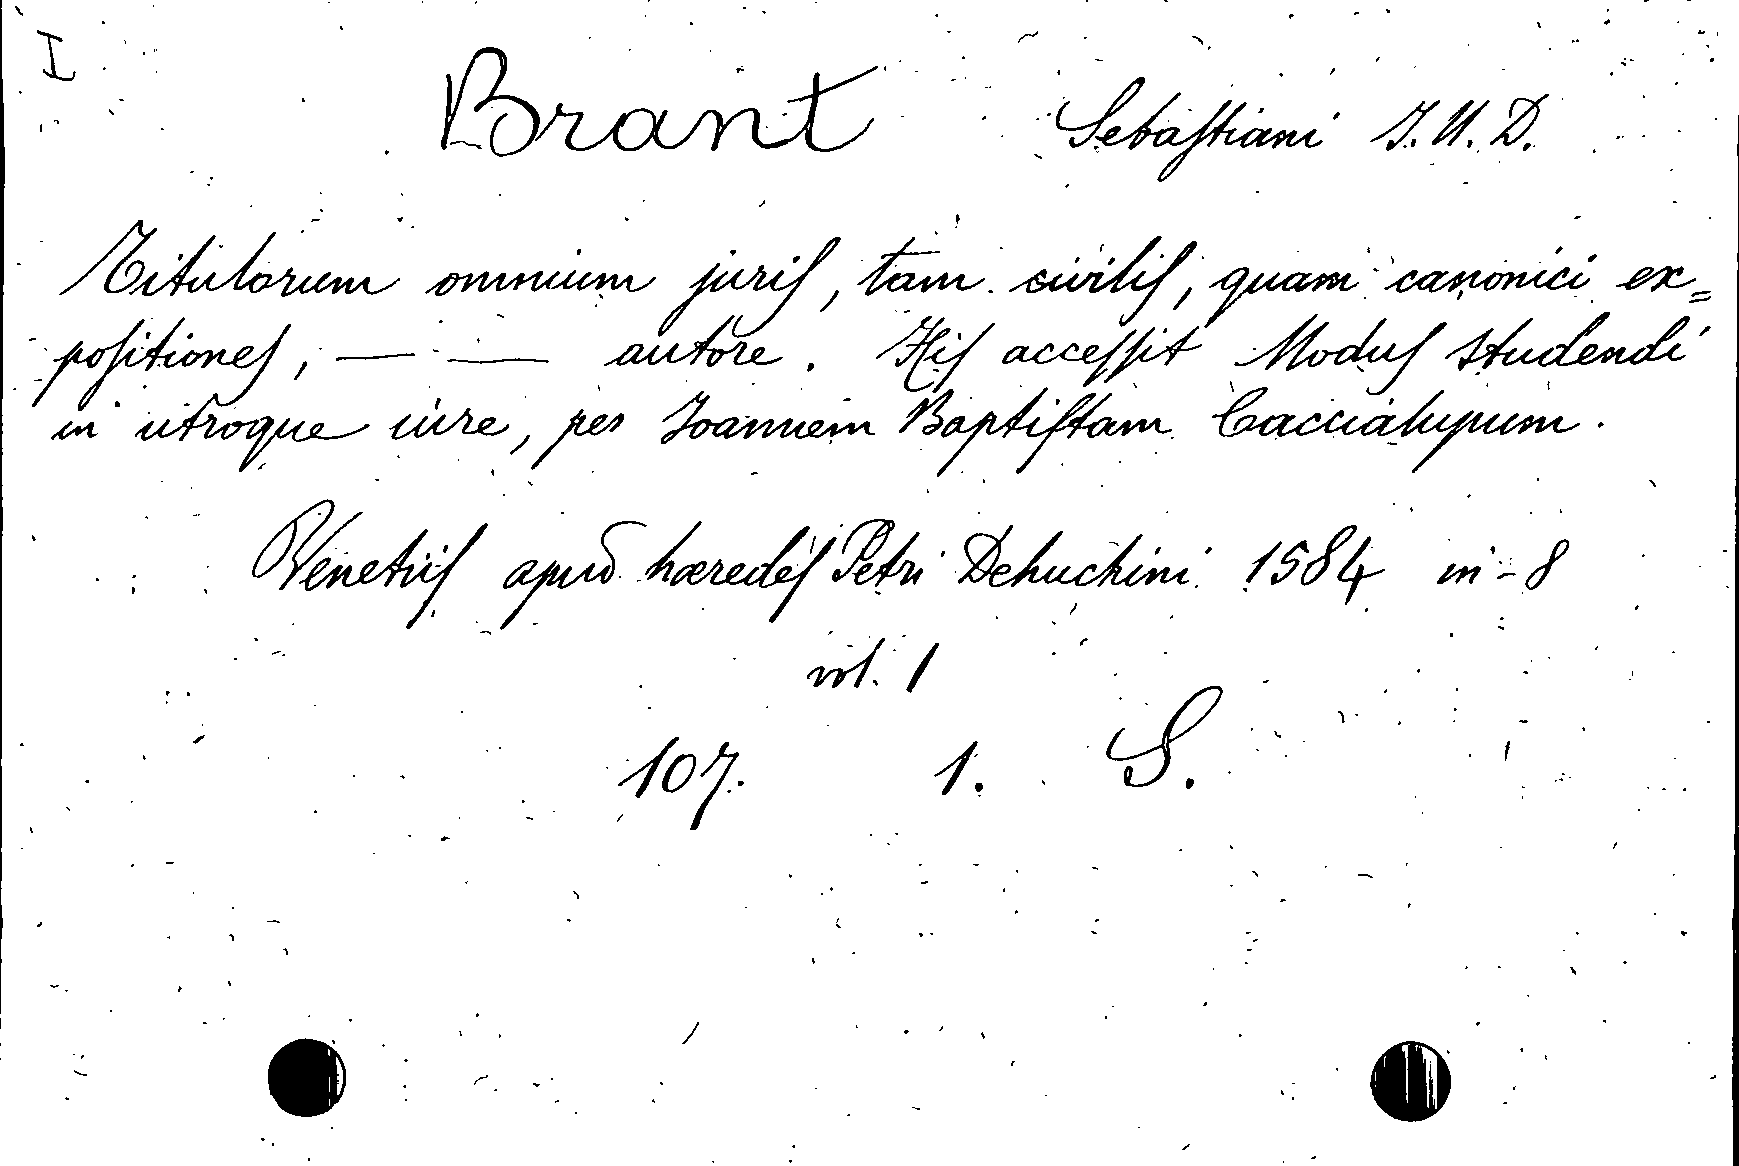 I
Brant Sebastiani J. U. D.
Titulorum omnium juris, tam civilis, quam canonici ex=
positiones, — — autore. His accessit Modus studendi
in utroque iure, per Joannem Baptistam Caccialupum.
Venetiis apud hæredes Petri Dehuchini 1584 in-8
vol. 1
107. 1. S.